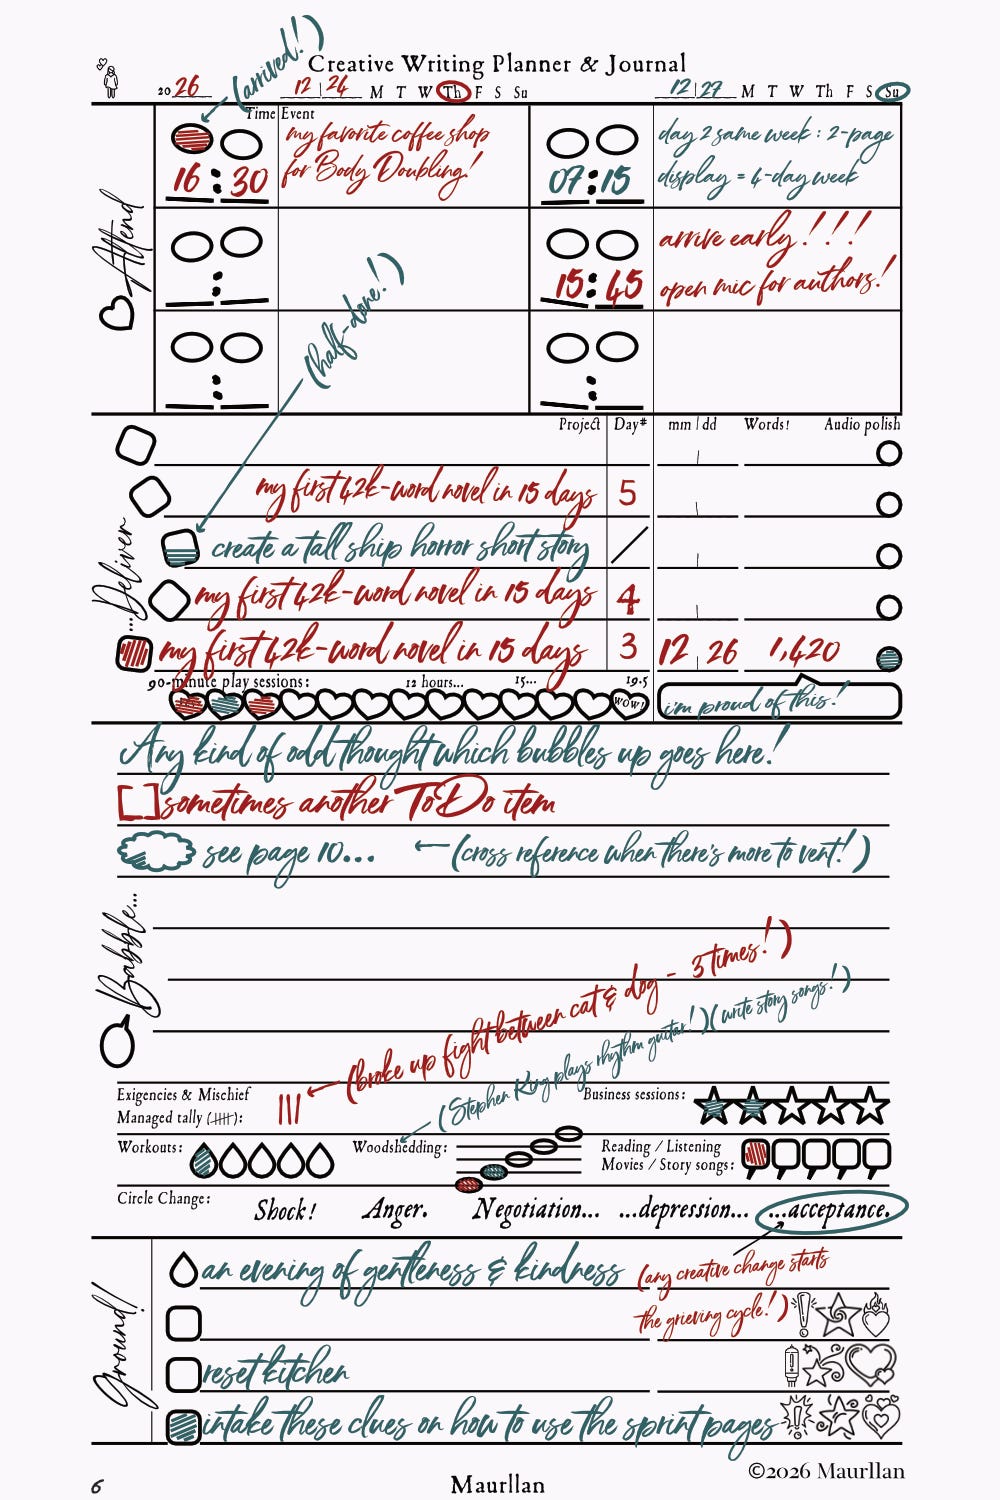 (arrived!)
Creative Writing Planner & Journal
20 26 12 | 24 M T W Th F S Su 12 | 27 M T W Th F S Su
Time Event
my favorite coffee shop
for Body Doubling!
16 : 30
day 2 same week : 2-page
display = 4-day week
07 : 15
arrive early ! ! !
open mic for authors!
15 : 45
Attend
(half-done!)
Project Day# mm | dd Words! Audio polish
my first 42k-word novel in 15 days 5
create a tall ship horror short story /
my first 42k-word novel in 15 days 4
my first 42k-word novel in 15 days 3 12 | 26 1,420
...Deliver
90-minute play sessions: 12 hours... 15... 19.5
WOW!
i'm proud of this!
Any kind of odd thought which bubbles up goes here!
[ ] sometimes another ToDo item
see page 10... ← (cross reference when there's more to vent!)
Babble...
(broke up fight between cat & dog - 3 times!)
(Stephen King plays rhythm guitar!) (write story songs!)
Exigencies & Mischief
Managed tally (卌):
|||
Business sessions:
Workouts:
Woodshedding:
Reading / Listening
Movies / Story songs:
Circle Change:
Shock! Anger. Negotiation... ...depression... ...acceptance.
Ground!
an evening of gentleness & kindness
(any creative change starts
the grieving cycle!)
reset kitchen
intake these clues on how to use the sprint pages
©2026 Maurllan
6
Maurllan